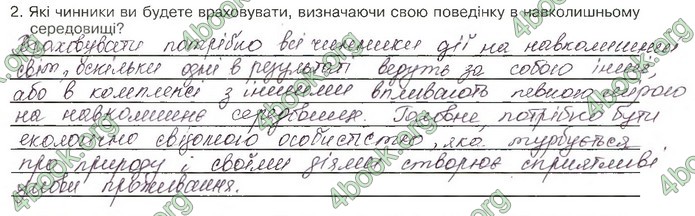 2. Які чинники ви будете враховувати, визначаючи свою поведінку в навколишньому
середовищі?
Враховувати потрібно всі чинники дії на навколишній
світ, оскільки одні в результаті ведуть за собою інші,
або в комплексі з іншими впливають певною мірою
на навколишнє середовище. Головне, потрібно бути
екологічно свідомою особистістю, яка турбується
про природу і своїми діями створює сприятливі
умови проживання.
4book.org